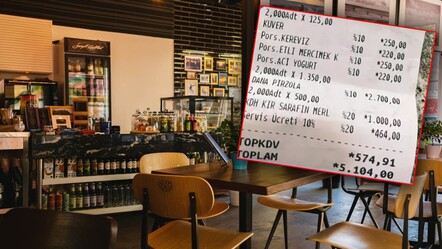 2,000Adt X 125,00
KUVER %10 *250,00
Pors.KEREVİZ %10 *220,00
Pors.ETLİ MERCİMEK K %10 *250,00
Pors.ACI YOGURT %10 *220,00
2,000Adt X 1.350,00
DANA PİRZOLA %10 *2.700,00
2,000Adt X 500,00
KDH KIR SARAFİN MERL %20 *1.000,00
ervis Ücreti 10% %20 *464,00
TOPKDV *574,91
TOPLAM *5.104,00